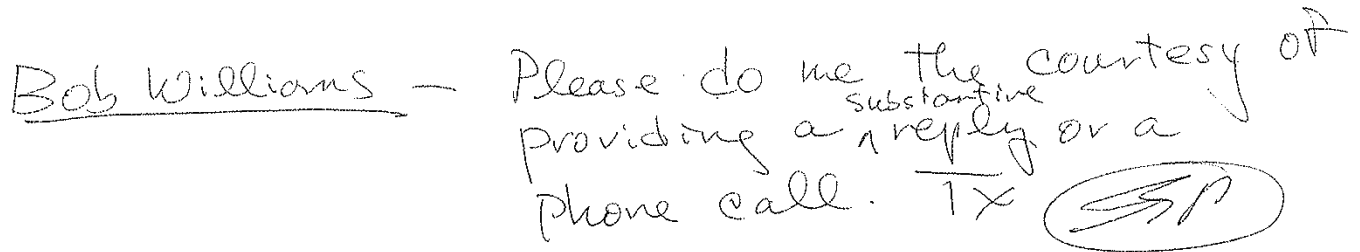 Bob Williams — Please do me the courtesy of
providing a substantive reply or a
phone call. Tx